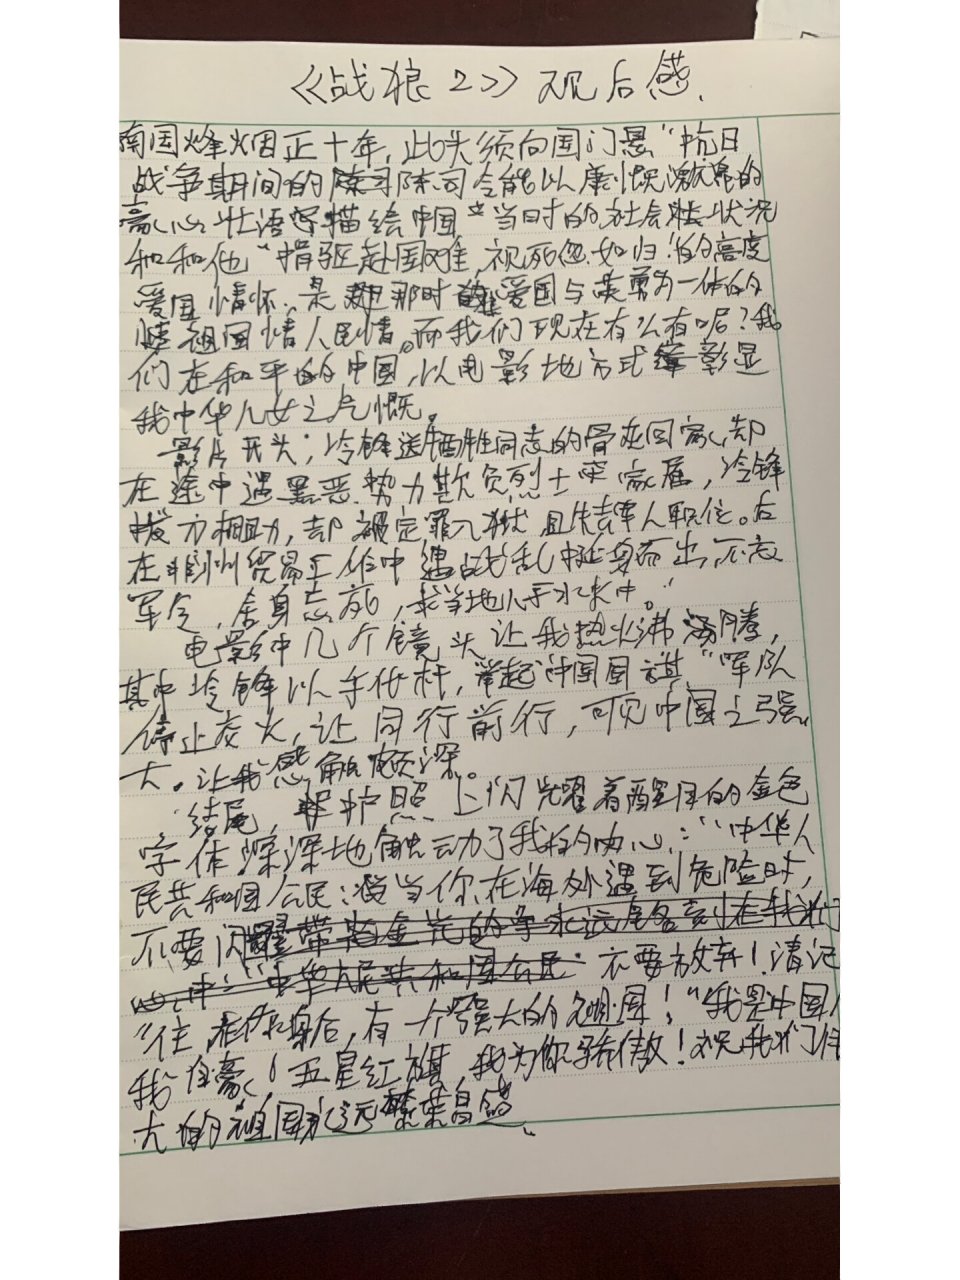 《战狼2》观后感.
南国烽烟正十年，此头须向国门悬“抗日
战争期间的陈司令能以慷慨激昂的
豪心壮语描绘中国当时的社会状况
和他“捐驱赴国难，视死忽如归”的高度
爱国情怀.是那时爱国与英勇为一体的
祖国情人民情。而我们现在有么有呢？我
们在和平的中国，以电影地方式彰显
我中华儿女之气慨。
影片开头；冷锋送牺牲同志的骨灰回家，却
在途中遇黑恶势力欺负烈士家属，冷锋
拔刀相助，却被定罪入狱且失去军人职位。后
在非洲贸易工作中遇战乱挺身而出，不忘
军令，舍身忘死，救当地人于水火中。
电影中几个镜头让我热火沸腾，
其中冷锋以手代杆，举起中国国旗“军队
停止交火，让同行前行，可见中国之强
大。让我感触颇深。
结尾，护照上闪耀着醒目的金色
字体深深地触动了我的内心：“中华人
民共和国公民：当你在海外遇到危险时，
不要 不要放弃！请记
住，在你身后，有一个强大的祖国！“我是中国人
我自豪！五星红旗，我为你骄傲！祝我们伟
大的祖国永远繁荣昌盛